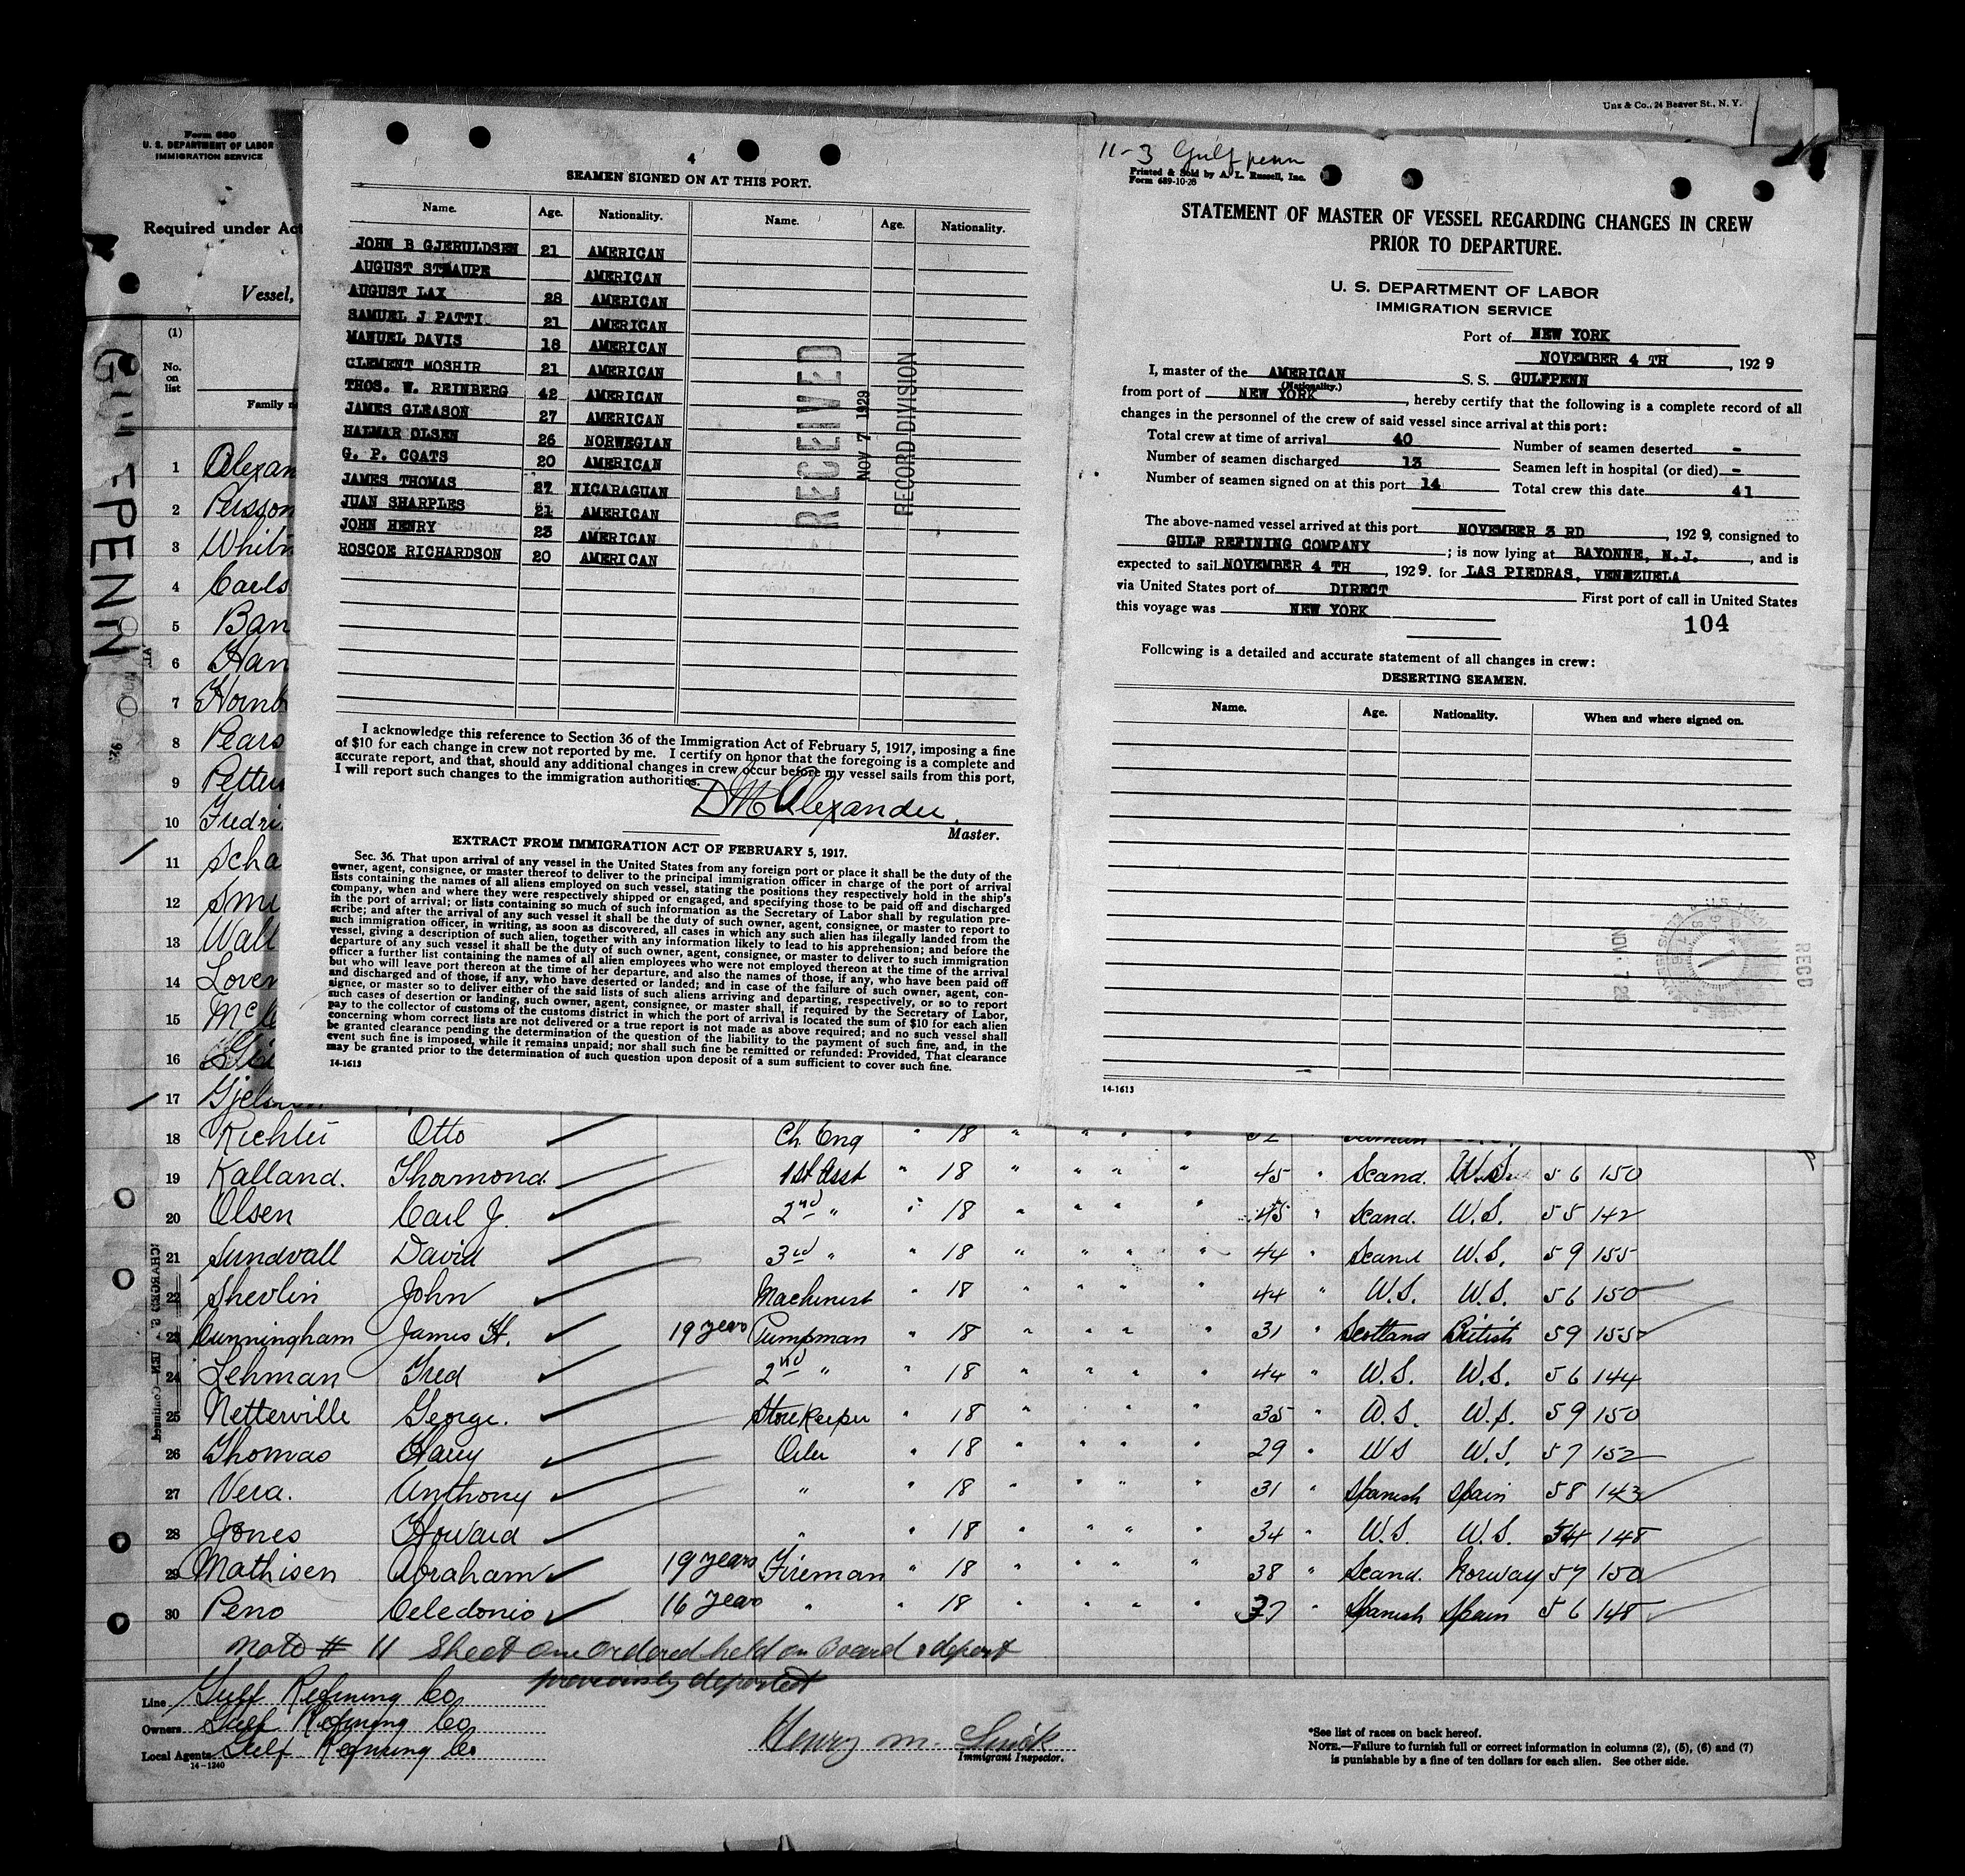 Unz & Co., 24 Beaver St., N. Y.
Form 680
U. S. DEPARTMENT OF LABOR
IMMIGRATION SERVICE
Required under Act
Vessel,
GULFPENN
(1)
No. on list
Family n
1 Alexan
2 Persson
3 Whitn
4 Carls
5 Ban
6 Han
7 Hornb
8 Pears
9 Petters
10 Fredri
11 Scha
12 Smi
13 Wall
14 Loven
15 McC
16
17 Gjels
4
SEAMEN SIGNED ON AT THIS PORT.
Name. Age. Nationality. Name. Age. Nationality.
JOHN B GJERULDSEN 21 AMERICAN
AUGUST STRAUPE AMERICAN
AUGUST LAX 28 AMERICAN
SAMUEL J PATTI 21 AMERICAN
MANUEL DAVIS 18 AMERICAN
CLEMENT MOSHIR 21 AMERICAN
THOS. W. REINBERG 42 AMERICAN
JAMES GLEASON 27 AMERICAN
HALMAR OLSEN 26 NORWEGIAN
G. P. COATS 20 AMERICAN
JAMES THOMAS 27 NICARAGUAN
JUAN SHARPLES 21 AMERICAN
JOHN HENRY 23 AMERICAN
ROSCOE RICHARDSON 20 AMERICAN
RECEIVED
NOV 7 1929
RECORD DIVISION
I acknowledge this reference to Section 36 of the Immigration Act of February 5, 1917, imposing a fine
of $10 for each change in crew not reported by me. I certify on honor that the foregoing is a complete and
accurate report, and that, should any additional changes in crew occur before my vessel sails from this port,
I will report such changes to the immigration authorities.
D M Alexander
Master.
EXTRACT FROM IMMIGRATION ACT OF FEBRUARY 5, 1917.
Sec. 36. That upon arrival of any vessel in the United States from any foreign port or place it shall be the duty of the
owner, agent, consignee, or master thereof to deliver to the principal immigration officer in charge of the port of arrival
lists containing the names of all aliens employed on such vessel, stating the positions they respectively hold in the ship's
company, when and where they were respectively shipped or engaged, and specifying those to be paid off and discharged
in the port of arrival; or lists containing so much of such information as the Secretary of Labor shall by regulation pre-
scribe; and after the arrival of any such vessel it shall be the duty of such owner, agent, consignee, or master to report to
such immigration officer, in writing, as soon as discovered, all cases in which any such alien has illegally landed from the
vessel, giving a description of such alien, together with any information likely to lead to his apprehension; and before the
departure of any such vessel it shall be the duty of such owner, agent, consignee, or master to deliver to such immigration
officer a further list containing the names of all alien employees who were not employed thereon at the time of the arrival
but who will leave port thereon at the time of her departure, and also the names of those, if any, who have been paid off
and discharged and of those, if any, who have deserted or landed; and in case of the failure of such owner, agent, con-
signee, or master so to deliver either of the said lists of such aliens arriving and departing, respectively, or so to report
such cases of desertion or landing, such owner, agent, consignee, or master shall, if required by the Secretary of Labor,
pay to the collector of customs of the customs district in which the port of arrival is located the sum of $10 for each alien
concerning whom correct lists are not delivered or a true report is not made as above required; and no such vessel shall
be granted clearance pending the determination of the question of the liability to the payment of such fine, and, in the
event such fine is imposed, while it remains unpaid; nor shall such fine be remitted or refunded: Provided, That clearance
may be granted prior to the determination of such question upon deposit of a sum sufficient to cover such fine.
14-1613
11-3 Gulfpenn
Printed & Sold by A. L. Russell, Inc.
Form 689-10-28
STATEMENT OF MASTER OF VESSEL REGARDING CHANGES IN CREW
PRIOR TO DEPARTURE.
U. S. DEPARTMENT OF LABOR
IMMIGRATION SERVICE
Port of NEW YORK
NOVEMBER 4 TH, 1929
I, master of the AMERICAN S. S. GULFPENN
(Nationality.)
from port of NEW YORK, hereby certify that the following is a complete record of all
changes in the personnel of the crew of said vessel since arrival at this port:
Total crew at time of arrival 40 Number of seamen deserted -
Number of seamen discharged 13 Seamen left in hospital (or died) -
Number of seamen signed on at this port 14 Total crew this date 41
The above-named vessel arrived at this port NOVEMBER 3 RD, 1929, consigned to
GULF REFINING COMPANY; is now lying at BAYONNE, N.J., and is
expected to sail NOVEMBER 4 TH, 1929. for LAS PIEDRAS, VENEZUELA
via United States port of DIRECT First port of call in United States
this voyage was NEW YORK
104
Following is a detailed and accurate statement of all changes in crew:
DESERTING SEAMEN.
Name. Age. Nationality. When and where signed on.
NOV 7 29
RECD
14-1613
18 Richter Otto Ch. Eng " 18 " " " " 52
19 Kalland. Thormond. 1st Asst " 18 " " " " 45 " Scand. U.S. 5 6 150
20 Olsen Carl J. 2nd " " 18 " " " " 45 " Scand. U.S. 5 5 142
21 Sundvall David 3rd " " 18 " " " " 44 " Scand U.S. 5 9 155
22 Shevlin John Machinist " 18 " " " " 44 " U.S. U.S. 5 6 150
23 Cunningham James H. 19 years Pumpman " 18 " " " " 31 " Scotland British 5 9 155
24 Lehman Fred 2nd " " 18 " " " " 44 " U.S. U.S. 5 6 144
25 Netterville George. Storekeeper " 18 " " " " 35 " U.S. U.S. 5 9 150
26 Thomas Harry Oiler " 18 " " " " 29 " U.S U.S. 5 7 152
27 Vera. Anthony " " 18 " " " " 31 " Spanish Spain 5 8 143
28 Jones Howard " " 18 " " " " 34 " U.S. U.S. 5 4 148
29 Mathisen Abraham 19 years Fireman " 18 " " " " 38 " Scand. Norway 5 7 150
30 Peno Celedonio 16 years " " 18 " " " " 37 " Spanish Spain 5 6 148
Note # 11 sheet one ordered held on Board & deport
previously deported
Line Gulf Refining Co.
Owners Gulf Refining Co.
Local Agents Gulf Refining Co
14-1240
Henry M.
Immigrant Inspector.
*See list of races on back hereof.
NOTE.—Failure to furnish full or correct information in columns (2), (5), (6) and (7)
is punishable by a fine of ten dollars for each alien. See other side.